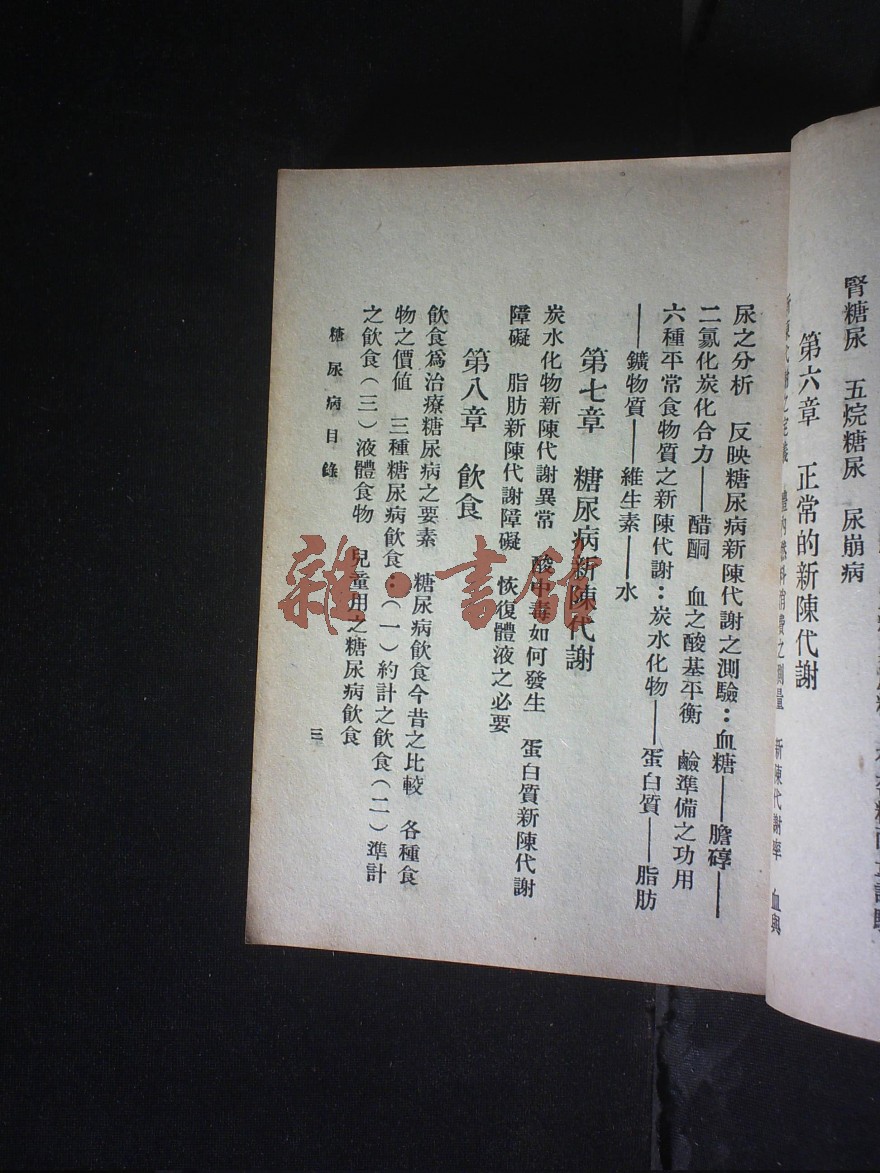 腎糖尿　五烷糖尿　尿崩病
第六章　正常的新陳代謝
新陳代謝之定義　體內燃料消費之測量　新陳代謝率　血與
尿之分析　反映糖尿病新陳代謝之測驗：血糖——膽𥔲——
二氯化炭化合力——醋酮　血之酸基平衡　鹼準備之功用
六種平常食物質之新陳代謝：炭水化物——蛋白質——脂肪
——鑛物質——維生素——水
第七章　糖尿病新陳代謝
炭水化物新陳代謝異常　酸中毒如何發生　蛋白質新陳代謝
障礙　脂肪新陳代謝障礙　恢復體液之必要
第八章　飲食
飲食爲治療糖尿病之要素　糖尿病飲食今昔之比較　各種食
物之價値　三種糖尿病飲食：(一)約計之飲食(二)準計
之飲食(三)液體食物　兒童用之糖尿病飲食
糖尿病目錄
三
雜·書館